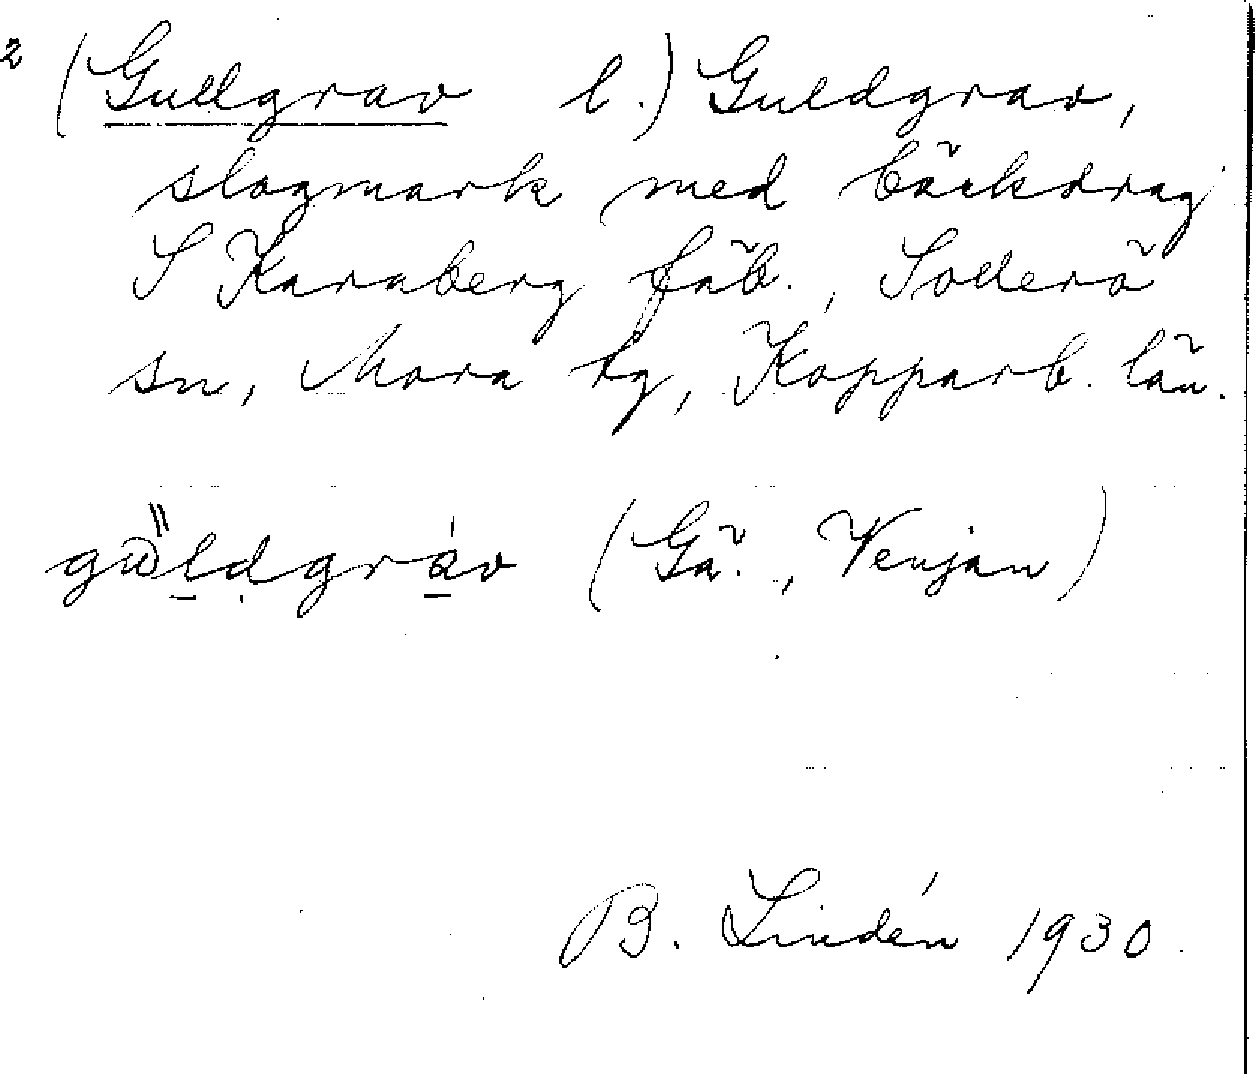 2 (Gullgrav l.) Guldgrav,
slogmark med bäckdrag
S Karaberg fäb., Sollerö
sn, Mora tg, Kopparb. län.
güldgráv (Gä., Venjan)
B. Lindén 1930.